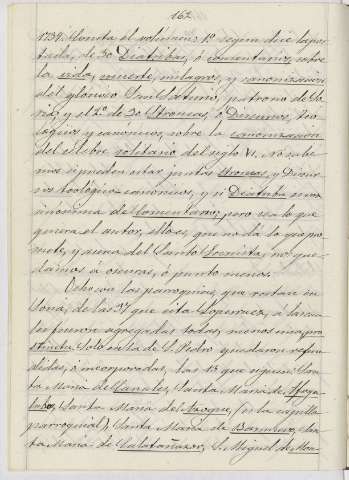 162
1734. Consta el volumen: 1º segun dice la por-
tada, de 30 Diatribas, ó comentarios, sobre
la vida, muerte, milagros, y canonización
del glorioso San Saturio, patrono de So-
ria, y el 2º de 30 Stromas, ó Discursos, teo-
lógicos y canonicos, sobre la canonizacion
del célebre solitario del siglo VI. No sabe-
mos si pueden estar juntos Stromas, y Discur-
sos teológico-canonicos, y si Diatriba es un
sinónimo de Comentario; pero sea lo que
quiera el autor, ello es, que no dá lo que pro-
mete, y acerca del Santo Eremita, nos que-
damos a oscuras, ó punto menos.
Ocho son las parroquias, que restan en
Soria, de las 37 que cita Loperraez, á las cua-
les fueron agregadas todas, menos una
Solo en la de S. Pedro quedaron refun-
didas, ó incorporadas, las 13 que siguen: San-
ta Maria de Canales, Santa Maria de
Santa Maria del Azogue, (en la capilla
parroquial), Santa Maria de Barnuevo, San-
ta Maria de Calatañazor, S. Miguel de Mon-